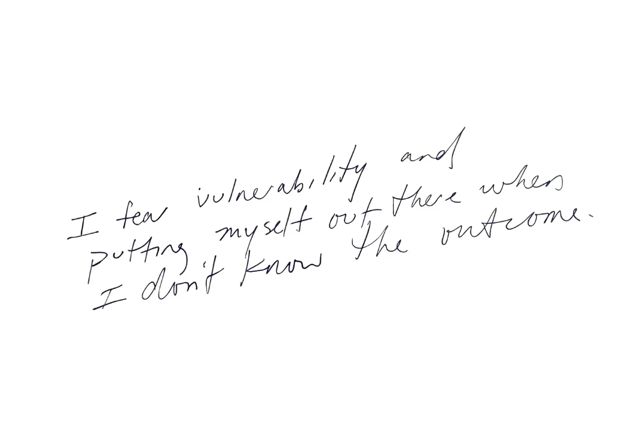 I fear vulnerability and
putting myself out there when
I don't know the outcome.